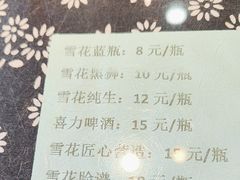 雪花蓝瓶：8 元/瓶
雪花黑狮：10 元/瓶
雪花纯生：12 元/瓶
喜力啤酒：15 元/瓶
雪花匠心营造：18 元/瓶
雪花脸谱 元/瓶